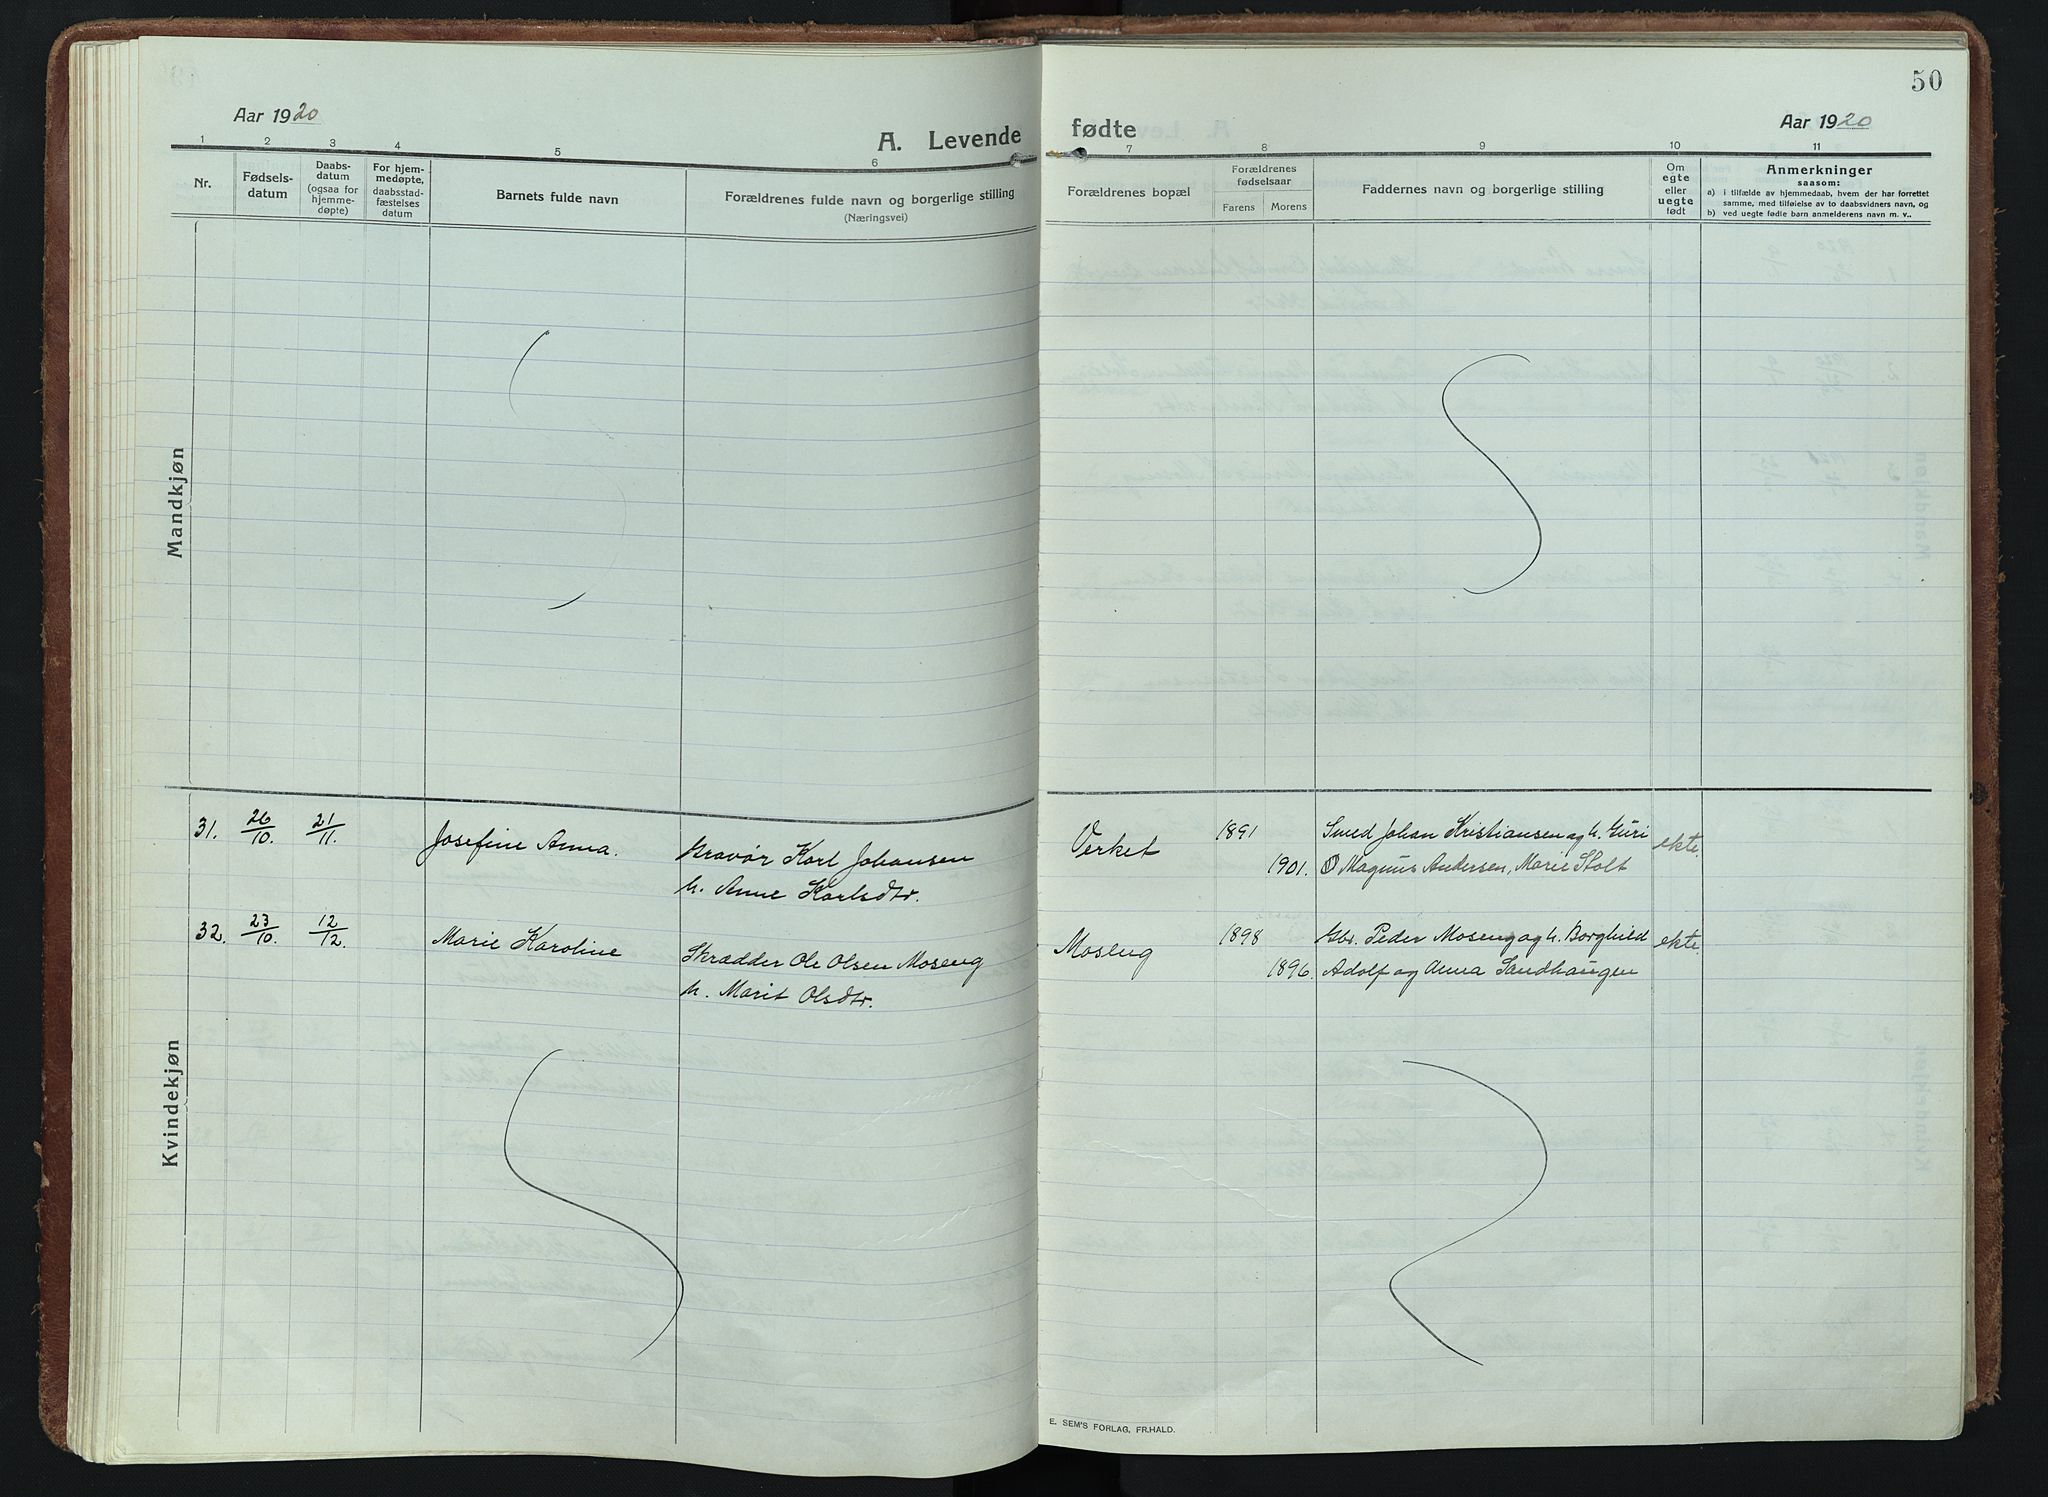 50
Aar 1920
A. Levende fødte
Aar 1920
1 2 3 4 5 6 7 8 9 10 11
Nr.
Fødsels-
datum
Daabs-
datum
(ogsaa for
hjemme-
døpte)
For hjem-
medøpte,
daabsstad-
fæstelses
datum
Barnets fulde navn
Forældrenes fulde navn og borgerlige stilling
(Næringsvei)
Forældrenes bopæl
Forældrenes
fødselsaar
Farens Morens
Faddernes navn og borgerlige stilling
Om
egte
eller
uegte
født
Anmerkninger
saasom:
a) i tilfælde av hjemmedaab, hvem der har forrettet
samme, med tilføielse av to daabsvidners navn, og
b) ved uegte fødte barn anmelderens navn m. v..
Mandkjøn
Kvindekjøn
31. 26/10. 21/11. Josefine Anna. Karl Johansen Verket 1891 Smed Johan Kristiansen og h. Guri ekte.
h. Anne Karlsdtr. 1901. Magnus Andersen, Marie Stolt
32. 23/10. 12/12. Marie Karoline Skrædder Ole Olsen Moseng Moseng 1898 Gbr. Peder Moseng og h. Borghild ekte.
h. Marit Olsdtr. 1896. Adolf og Anna Sandhaugen
E. SEM'S FORLAG, FR.HALD.